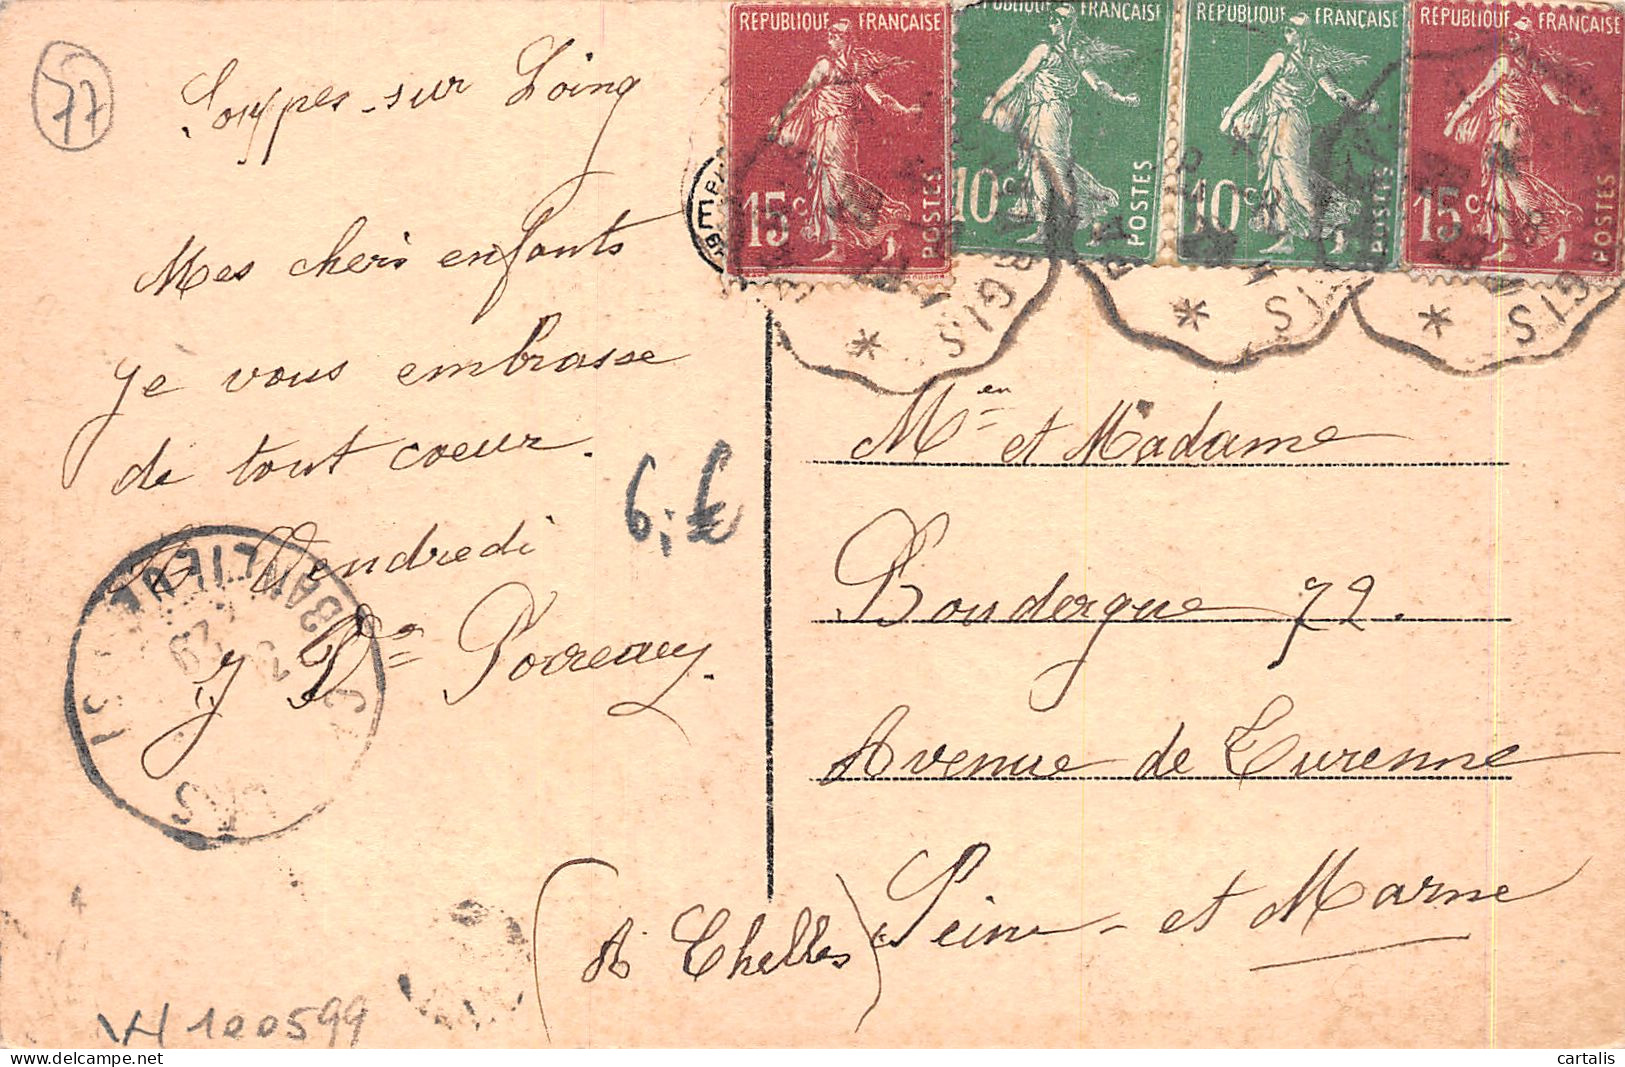 77
Souppes-sur Loing
Mes chers enfants
je vous embrasse
de tout coeur.
Vendredi
Vve Poireau
6,€
VH 100599
REPUBLIQUE FRANÇAISE
15c
POSTES
REPUBLIQUE FRANÇAISE
10c
POSTES
REPUBLIQUE FRANÇAISE
10c
POSTES
REPUBLIQUE FRANÇAISE
15c
POSTES
RGIS
IS
GIS
BANLIEUE
Men et Madame
Bondergue 72.
Avenue de Turenne
(A Chelles) Seine-et Marne
cartalis